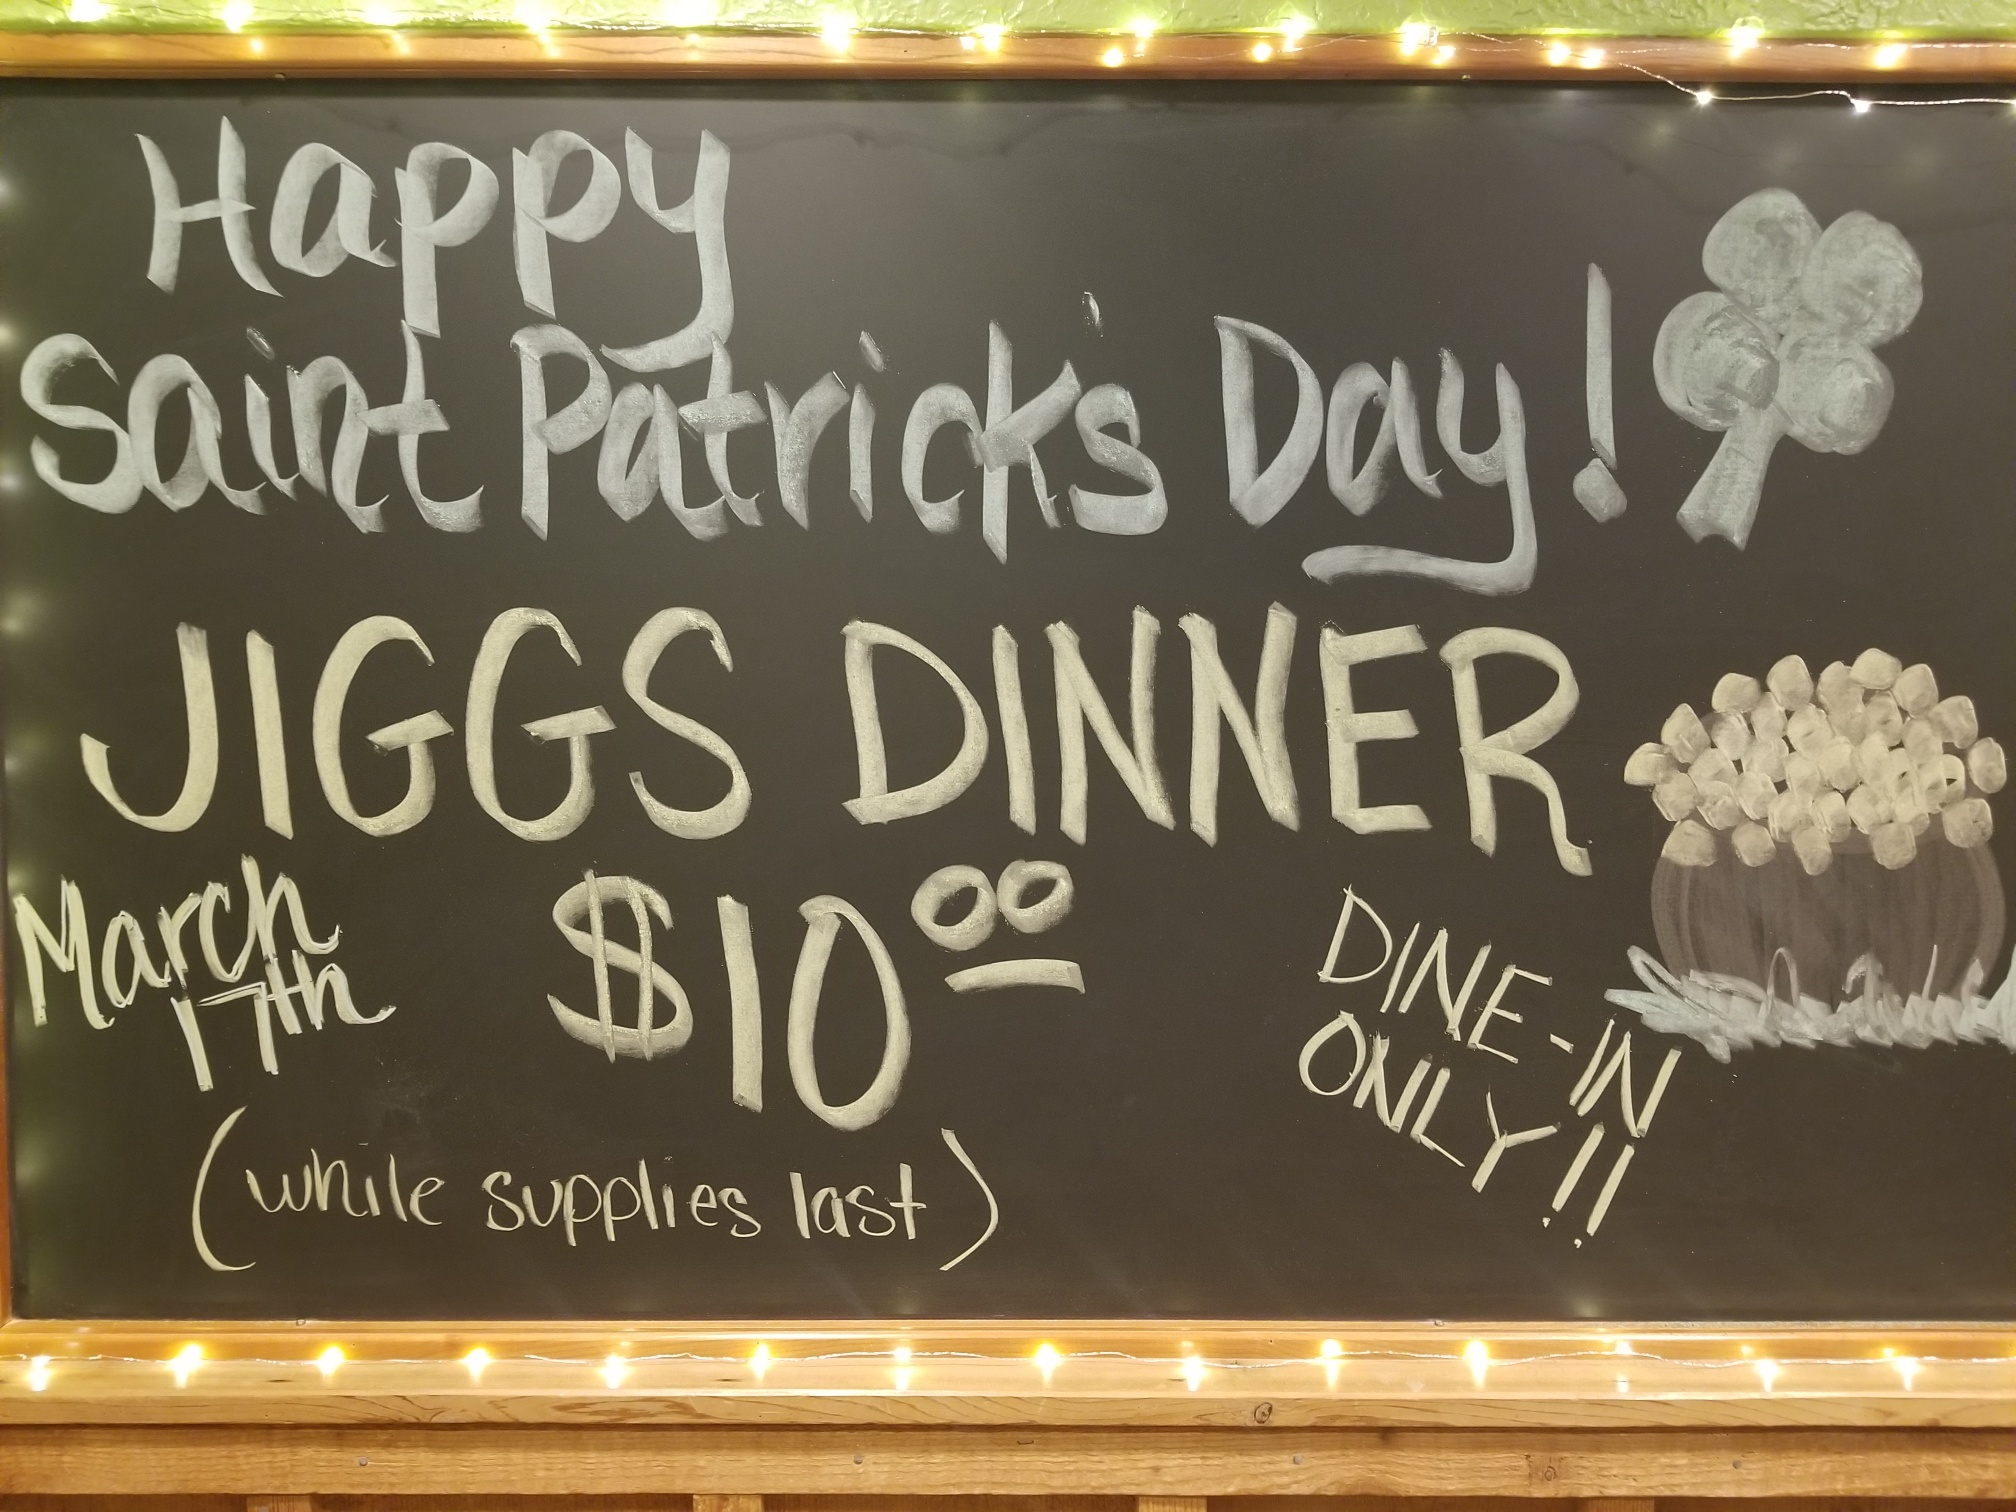 Happy
Saint Patrick's Day!
JIGGS DINNER
March
17th
$10.00
DINE-IN
ONLY!!
(while supplies last)